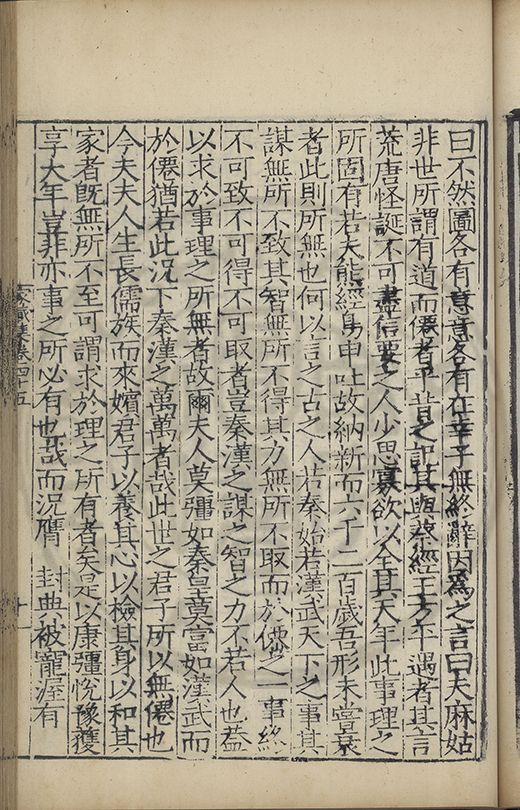 曰不然圖各有意意各有在幸子無終辭因爲之言曰夫麻姑
非世所謂有道而僊者乎昔之記其與蔡經王方平遇者其言
荒唐怪誕不可盡信要之人少思寡欲以全其天年此事理之
所固有若夫熊經鳥申吐故納新而六千二百歲吾形未嘗衰
者此則所無也何以言之古之人若秦始若漢武天下之事其
謀無所不致其智無所不得其力無所不取而於僊之一事終
不可致不可得不可取者豈秦漢之謀之智之力不若人也葢
以求於事理之所無者故爾夫人莫彊如秦皇莫富如漢武而
於僊猶若此況下秦漢之萬萬者哉此世之君子所以無僊也
今夫夫人生長儒族而來嬪君子以養其心以檢其身以和其
家者旣無所不至可謂求於理之所有者矣是以康彊悅豫獲
享大年豈非亦事之所必有也哉而況膺　封典被寵渥有
家藏集卷四十五